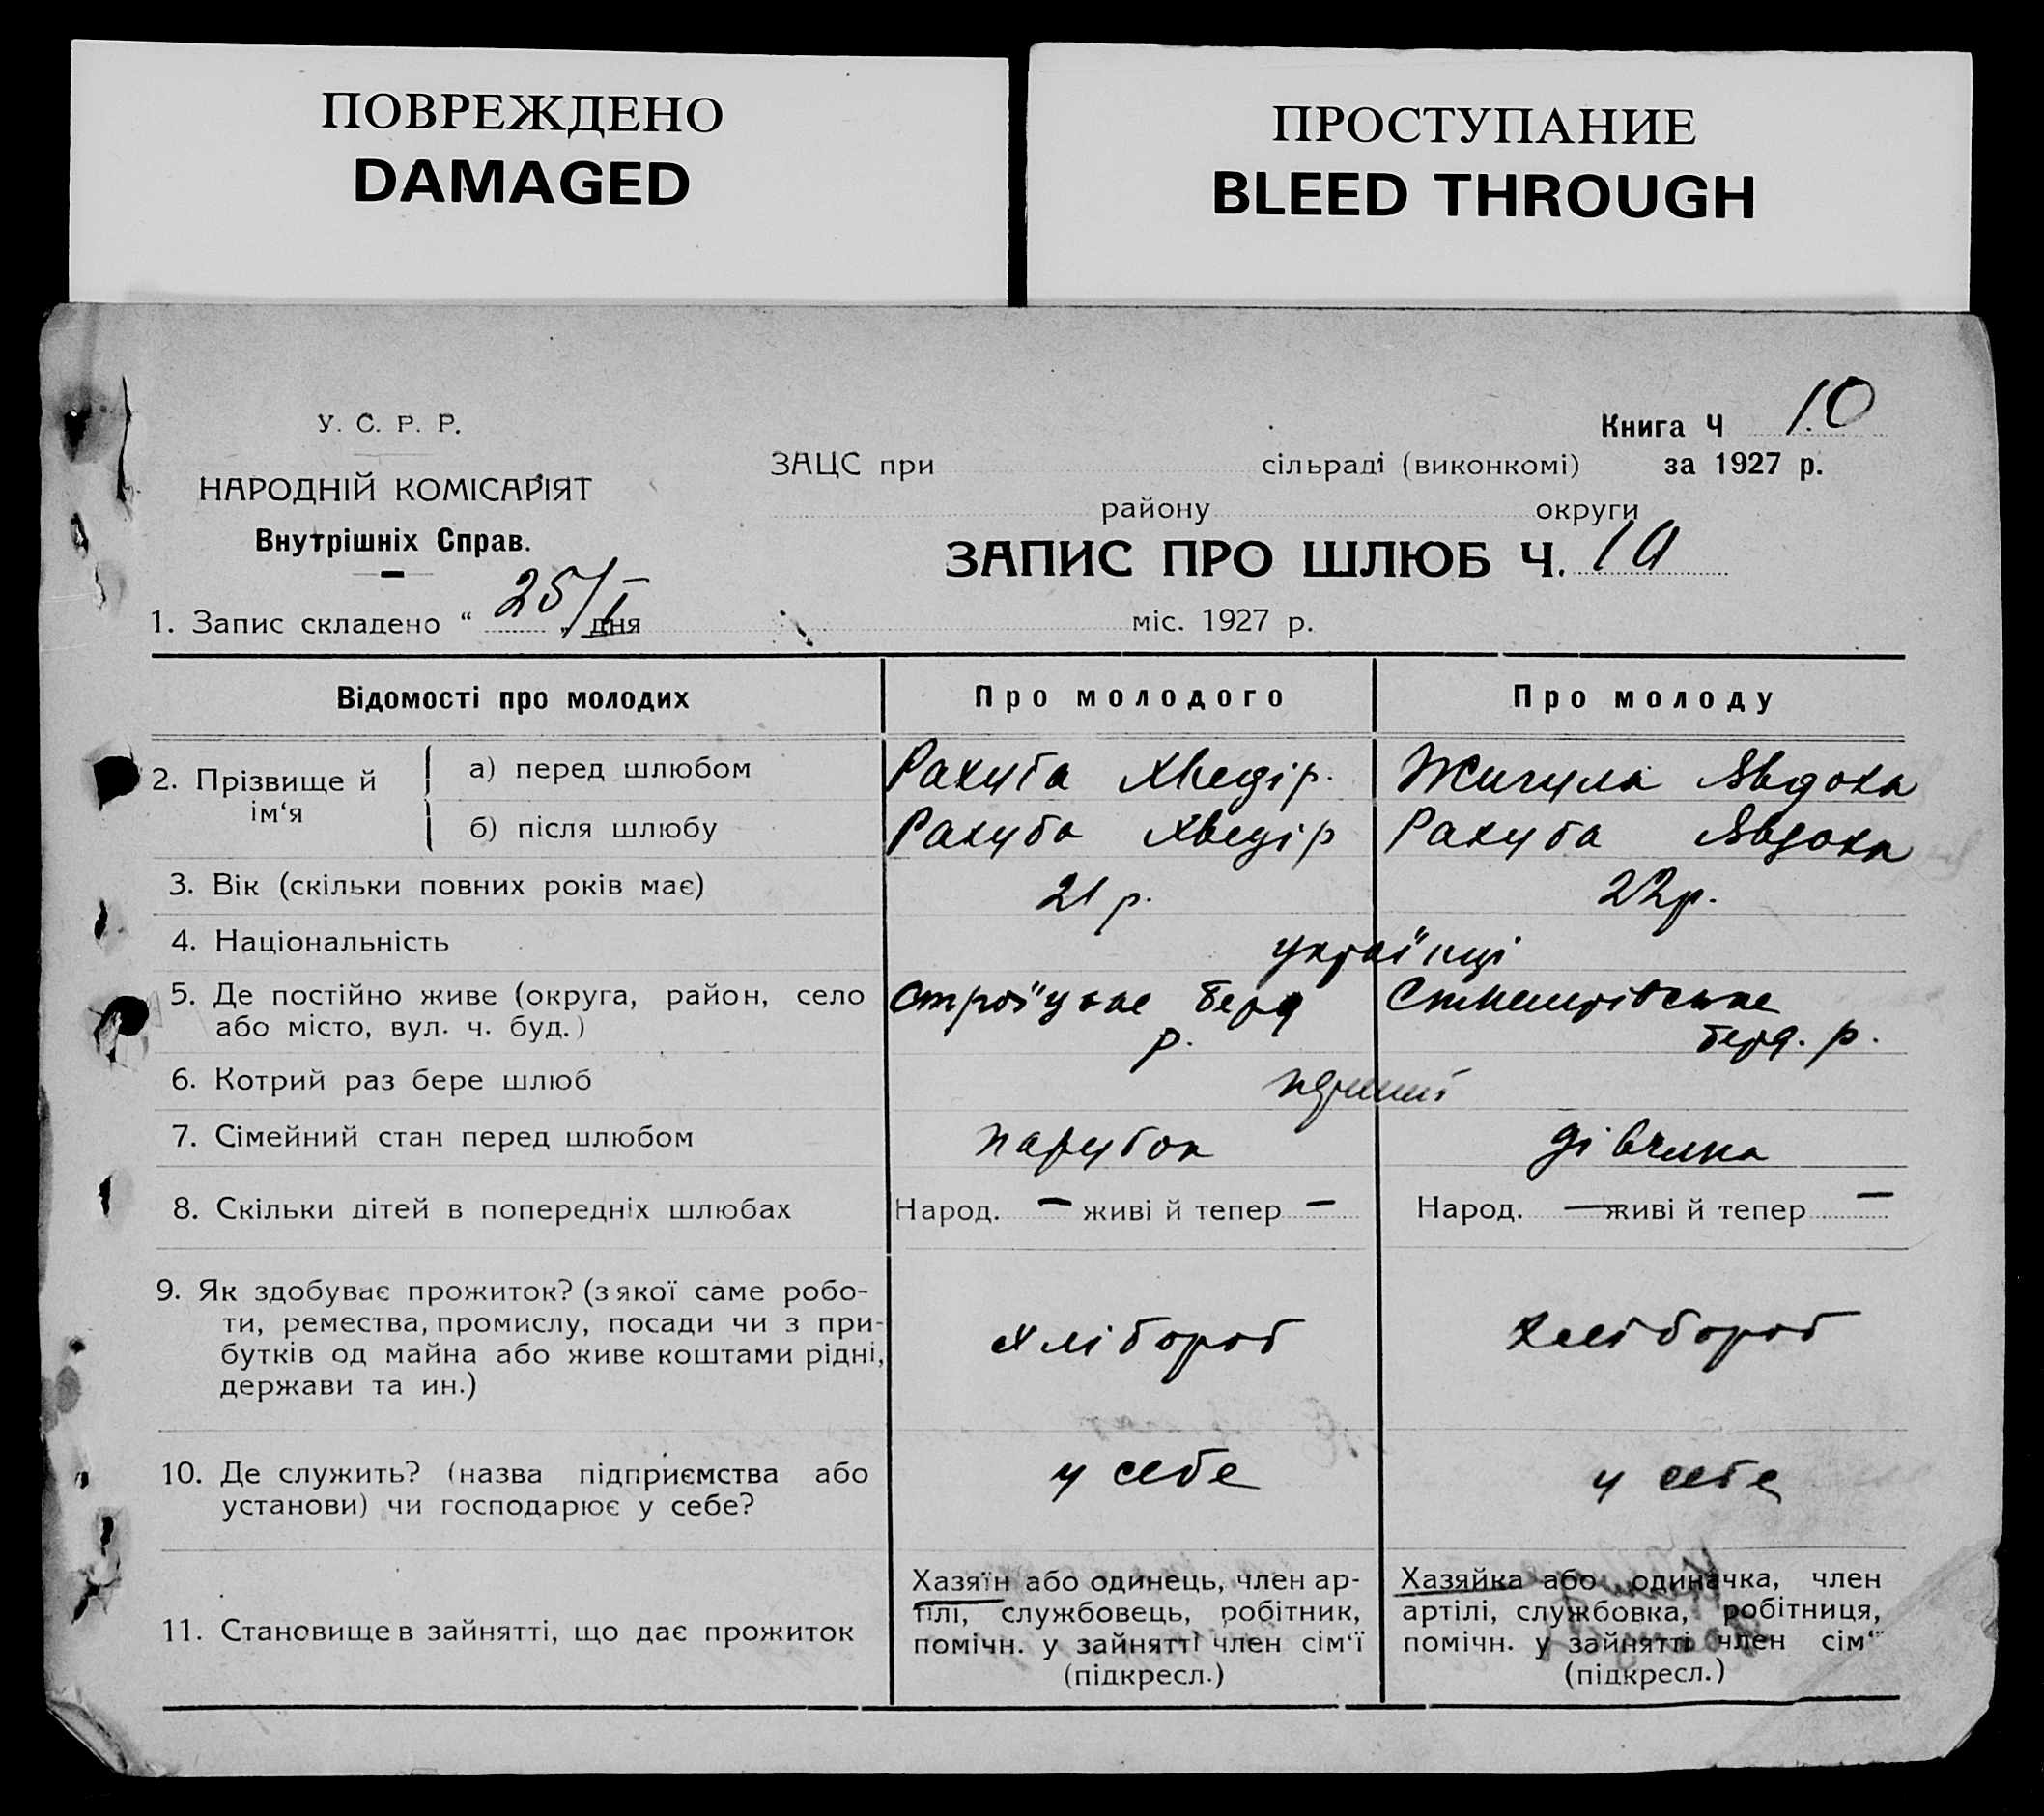 ПОВРЕЖДЕНО
DAMAGED
ПРОСТУПАНИЕ
BLEED THROUGH
У. С. Р. Р.
НАРОДНІЙ КОМІСАРІЯТ
Внутрішніх Справ.
Книга Ч 10
ЗАЦС при сільраді (виконкомі) за 1927 р.
району округи
ЗАПИС ПРО ШЛЮБ Ч. 10
1. Запис складено “ 25/I „ дня міс. 1927 р.
Відомості про молодих Про молодого Про молоду
2. Прізвище й ім‘я а) перед шлюбом Рахуба Хведір. Жигула Явдоха
б) після шлюбу Рахуба Хведір Рахуба Явдоха
3. Вік (скільки повних років має) 21 р. 22 р.
4. Національність українці
5. Де постійно живе (округа, район, село
або місто, вул. ч. буд.)
Берд р.
берд. р.
6. Котрий раз бере шлюб
7. Сімейний стан перед шлюбом парубок дівчина
8. Скільки дітей в попередніх шлюбах Народ. – живі й тепер – Народ. – живі й тепер –
9. Як здобуває прожиток? (з якої саме робо-
ти, ремества, промислу, посади чи з при-
бутків од майна або живе коштами рідні,
держави та ин.)
хлібороб хлібороб
10. Де служить? (назва підприємства або
установи) чи господарює у себе?
у себе у себе
11. Становище в зайнятті, що дає прожиток
Хазяїн або одинець, член ар-
тілі, службовець, робітник,
помічн. у зайнятті член сім‘ї
(підкресл.)
Хазяйка або одиначка, член
артілі, службовка, робітниця,
помічн. у зайнятті член сім‘
(підкресл.)